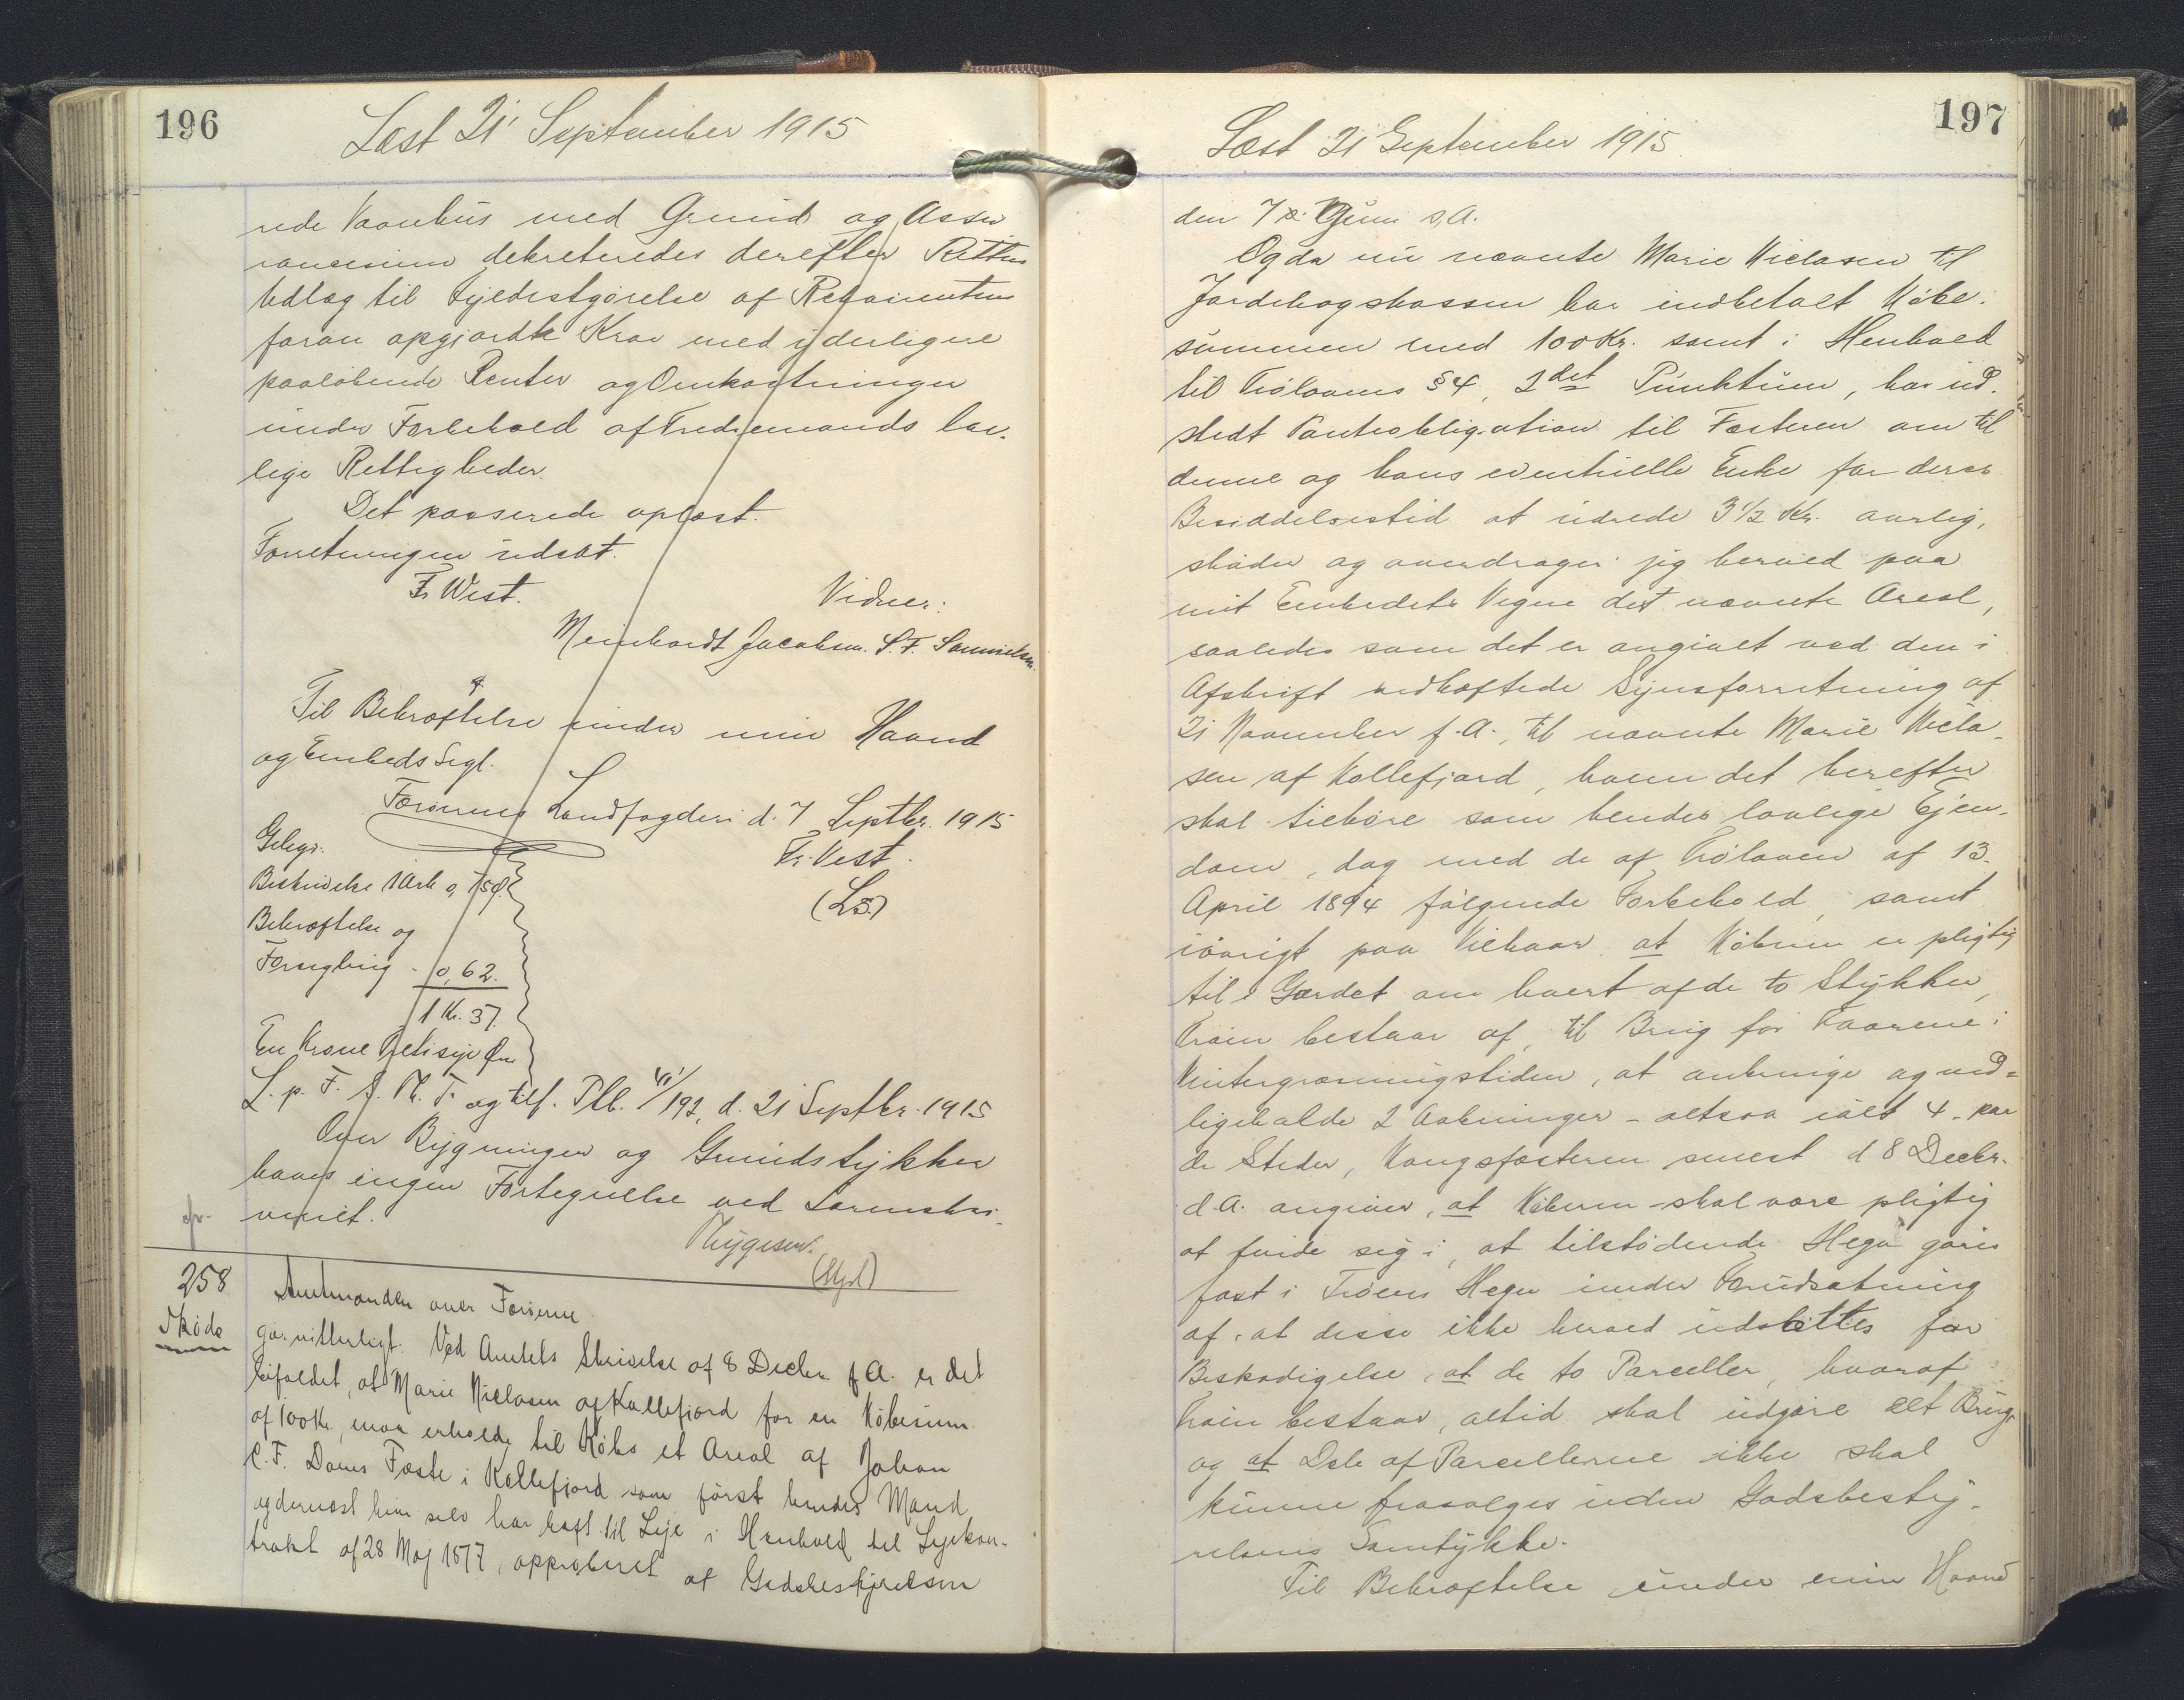 196
Læst 21' September 1915
rede Vaanhus med Grund og Assu
rancesum dekreteredes derefter Rettens
Udlæg til Fyldestgörelse af Rekvirentens
foran opgjordte Krav med yderligere
paalöbende Renter og Omkostninger
under Forbehold af Tredjemands lov-
lige Rettigheder.
Det passerede oplæst.
Forretningen sluttet.
Fr West.
Vidner:
Meinhardt Jacobsen. S. F. Samuelsen.
Til Bekræftelse under min Haand
og Embeds Segl.
Færöernes Landfogderi d. 7 Septbr. 1915
Fr. Vest.
(L.S.)
Gebyr.
Beskrivelse 1 Ark 0,75 Ø.
Bekræftelse og
Forsegling - 0,62.
1 Kr. 37.
En Krone 37 Øre
L. p. F. S. Th. T. og tilf. Pb. VI/192, d. 21 Septbr. 1915
Over Bygninger og Grundstykker
haves ingen Fortegnelse ved Sorenskri-
veriet.
Thygesen.
(Sgl.)
258
Sköde
Amtmanden over Færöerne
gör vitterligt: Ved Amtets Skrivelse af 8 Decbr. f A. er det
bifaldet, at Marie Niclasen af Kollefjord for en Köbesum
af 100 Kr, maa erholde til Köbs et Areal af Johan
C. F. Dams Fæste i Kollefjord som först hendes Mand
og dernæst hun selv har haft til Leje i Henhold til Lejekon-
trakt af 28 Maj 1877, approberet af Godsbestyrelsen
197
Læst 21 September 1915
den 7 Juni s.A.
Og da nu nævnte Marie Niclasen til
Jordebogskassen har indbetalt Köbe-
summen med 100 Kr. samt i Henhold
til Trölovens § 4, 2det Punktum, har ud-
stedt Panteobligation til Fæsteren om til
denne og hans eventuelle Enke for deres
Besiddelsestid at udrede 3 1/2 Kr. aarlig,
sköder og overdrager jeg herved paa
mit Embedets Vegne det nævnte Areal,
saaledes som det er angivet ved den i
Afskrift vedhæftede Synsforretning af
21 November f. A., til nævnte Marie Nicla-
sen af Kollefjord, hvem det herefter
skal tilhöre som hendes lovlige Ejen-
dom, dog med de af Tröloven af 13.
April 1894 fölgende Forbehold, samt
iövrigt paa Vilkaar, at Köberen er pligtig
til i Gærdet om hvert af de to Stykker,
Tröen bestaar af, til Brug for Faarene i
Vintergræsningstiden, at anbringe og ved-
ligeholde 2 Aabninger - altsaa ialt 4 - paa
de Steder, Kongsfæsteren senest d 8 Decbr.
d.A. angiver, at Köberen skal være pligtig
at finde sig i, at tilstödende Hegn göres
fast i Tröens Hegn under Forudsætning
af, at disse ikke herved udsættes for
Beskadigelse, at de to Parceller, hvoraf
Tröen bestaar, altid skal udgöre eet Brug,
og at Dele af Parcellerne ikke skal
kunne frasælges uden Godsbesty-
relsens Samtykke.
Til Bekræftelse under min Haand